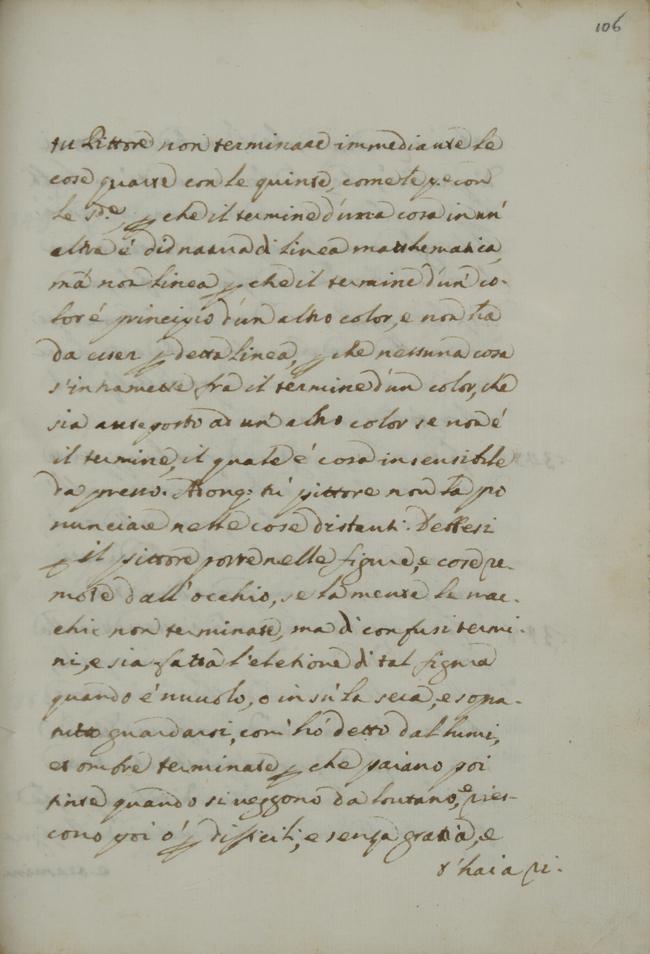 106
tu Pittore non terminare immediante le
cose quarte con le quinte, come le p.e con
le s.de, p che il termine d'una cosa in un'
altra é di natura di linea matthematica,
má non linea p che il termine d'un' co-
lor é principio d'un altro color, e non ha
da esser p detta linea, p che nessuna cosa
s'intramette frà il termine d'un color, che
sia anteposto ad un' altro color se non é
il termine, il quale é cosa insensibile
da presso. Adonq. tú pittore non la po
nunciare nelle cose distanti. Devesi
p il pittore porre nelle figure, e cose re-
mote dall'occhio, solamente le mac-
chie non terminate, ma di confusi termi-
ni, e sia fatta l'eletione di tal figura
quando é nuvolo, o in sú la sera, e sopra
tutto guardarsi, com' hó detto dal lumi,
et ombre terminate p che paiano poi
tinte quando si veggono da lontano, e ries-
cono poi ó p difficili, e senza gratia, e
s'haia ri-